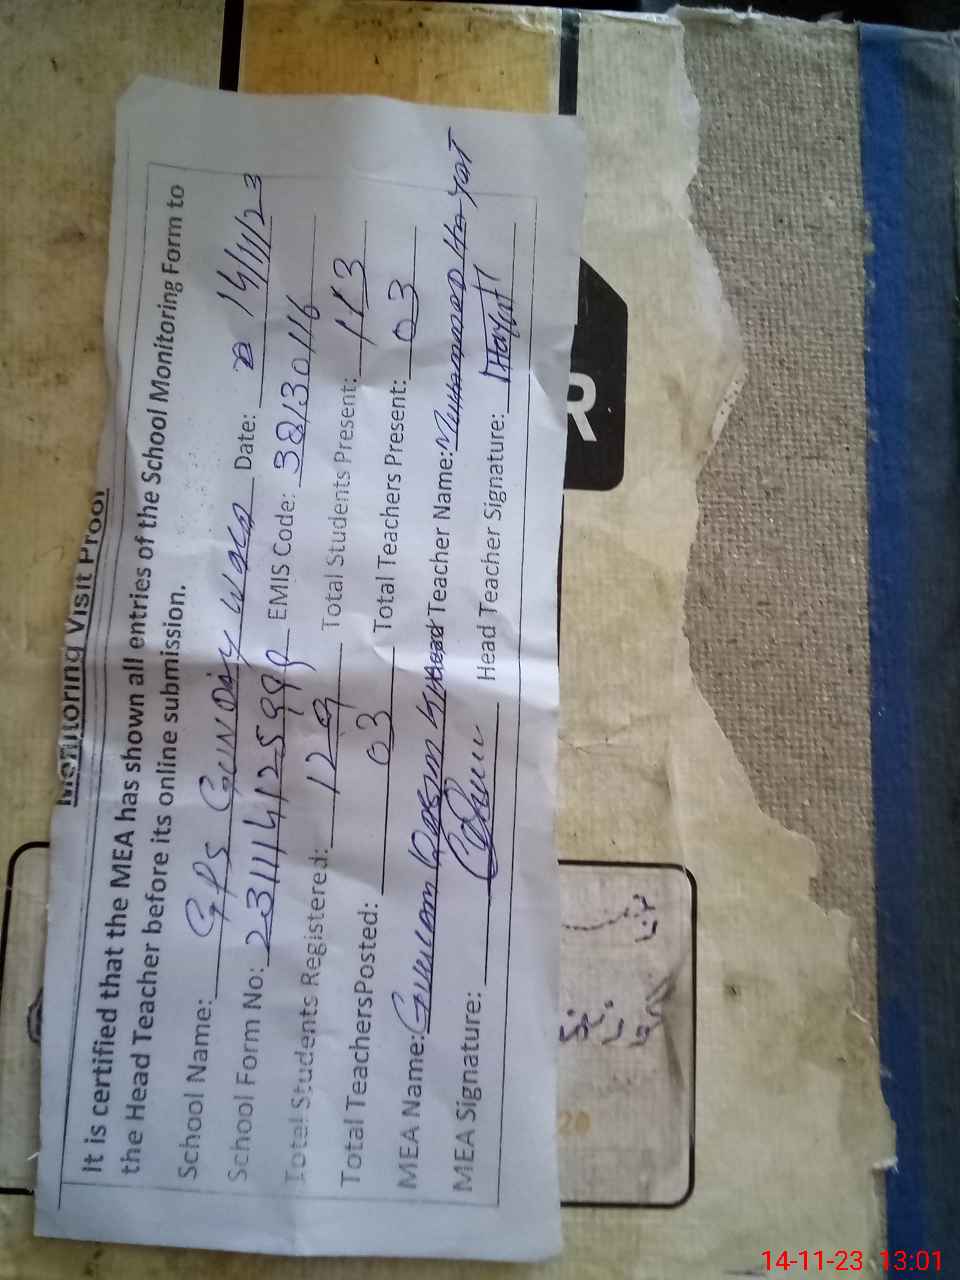 Monitoring Visit Proof
It is certified that the MEA has shown all entries of the School Monitoring Form to
the Head Teacher before its online submission.
School Name: GPS Gundiy Date: 14/11/23
School Form No: 231114125999 EMIS Code: 38130116
Total Students Registered: 129 Total Students Present: 113
Total TeachersPosted: 03 Total Teachers Present: 03
MEA Name: Ghulam Head Teacher Name: Muhammad Hayat
MEA Signature: Head Teacher Signature: Hayat
R
20
14-11-23 13:01